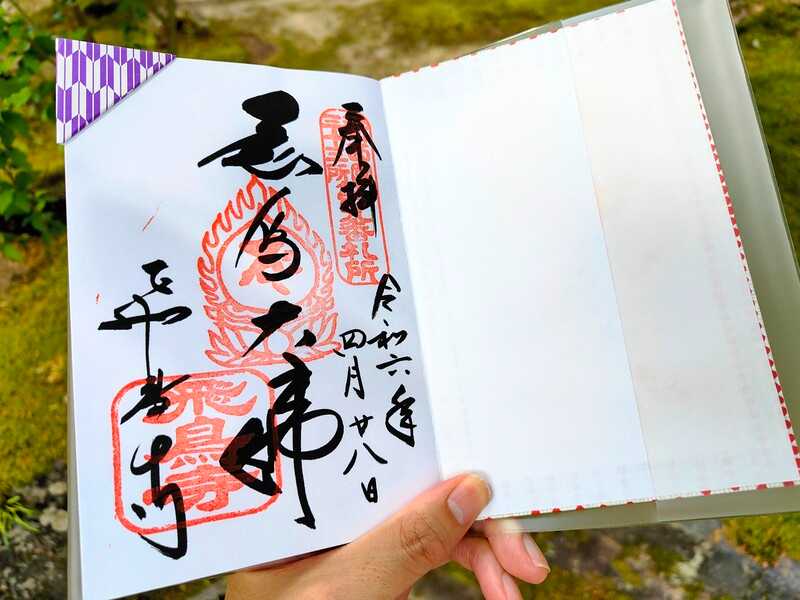 奉拝
三十三所
番札所
令和六年
四月廿八日
飛鳥大佛
飛鳥寺